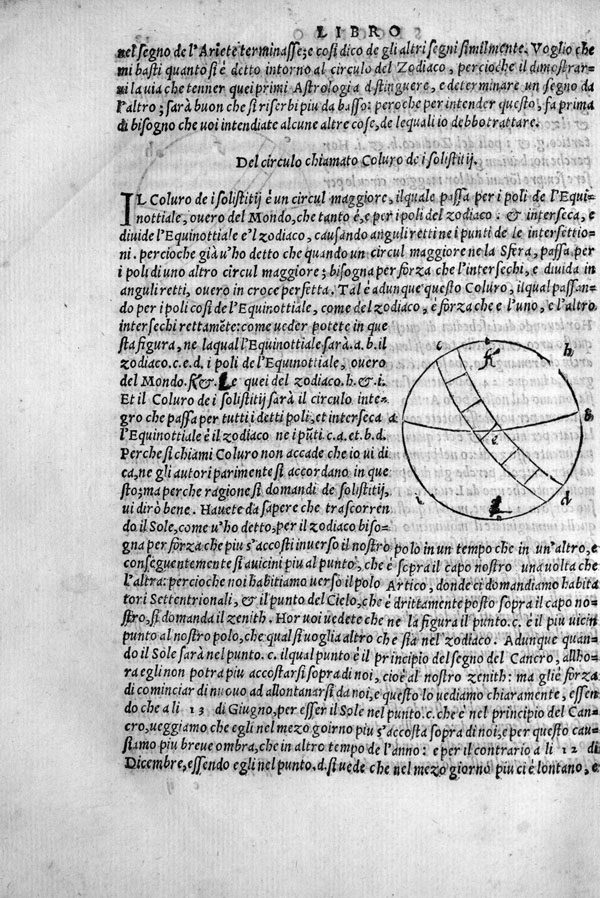 LIBRO
nel segno de l'Ariete terminasse; e cosi dico de gli altri segni similmente. Voglio che
mi basti quanto si è detto intorno al circulo del Zodiaco, percioche il dimostrar-
ui la uia che tenner quei primi Astrologi a distinguere, e determinare un segno da
l'altro; sarà buon che si riserbi piu da basso: peroche per intender questo, fa prima
di bisogno che uoi intendiate alcune altre cose, de lequali io debbo trattare.
Del circulo chiamato Coluro de i solistitij.
IL Coluro de i solistitij è un circul maggiore, ilquale passa per i poli de l'Equi-
nottiale, ouero del Mondo, che tanto è, e per i poli del zodiaco. & interseca, e
diuide l'Equinottiale e'l zodiaco, causando anguli retti ne i punti de le intersettio-
ni. percioche già u'ho detto che quando un circul maggiore ne la Sfera, passa per
i poli di uno altro circul maggiore; bisogna per forza che l'intersechi, e diuida in
anguli retti, ouero in croce perfetta. Tal è adunque questo Coluro, ilqual passan-
do per i poli cosi de l'Equinottiale, come del zodiaco, è forza che e l'uno, e l'altro
intersechi rettamēte: come ueder potete in que
sta figura, ne laqual l'Equinottiale sarà .a.b. il
zodiaco .c.e.d. i poli de l'Equinottiale, ouero
del Mondo .K. & .L. e quei del zodiaco .h. & .i.
Et il Coluro de i solistitij sarà il circulo inte-
gro che passa per tutti i detti poli, et interseca
l'Equinottiale è il zodiaco ne i pūti c.a. et .b.d.
Perche si chiami Coluro non accade che io ui di
ca, ne gli autori parimente si accordano in que
sto; ma perche ragione si domandi de solistitij,
ui dirò bene. Hauete da sapere che trascorren
do il Sole, come u'ho detto, per il zodiaco biso-
gna per forza che piu s'accosti inuerso il nostro polo in un tempo che in un'altro, e
conseguentemente si auicini piu al punto, che è sopra il capo nostro una uolta che
l'altra: percioche noi habitiamo uerso il polo Artico, donde ci domandiamo habita
tori Settentrionali, & il punto del Cielo, che è drittamente posto sopra il capo no-
stro, si domanda il zenith. Hor uoi uedete che ne la figura il punto .c. è il piu uicin
punto al nostro polo, che qual si uoglia altro che sia nel zodiaco. Adunque quan-
do il Sole sarà nel punto .c. ilqual punto è il principio del segno del Cancro, allho-
ra egli non potra piu accostarsi sopra di noi, cioè al nostro zenith: ma gli è forza
di cominciar di nuouo ad allontanarsi da noi, e questo lo uediamo chiaramente, essen
do che a li 13 di Giugno, per esser il Sole nel punto .c. che è nel principio del Can-
cro, ueggiamo che egli nel mezo goirno piu s'accosta sopra di noi, e per questo cau-
stiamo piu breue ombra, che in altro tempo de l'anno: e per il contrario a li 12 di
Dicembre, essendo egli nel punto .d. si uede che nel mezo giorno piu ci è lontano, e
c
K
h
a
b
e
i
L
d